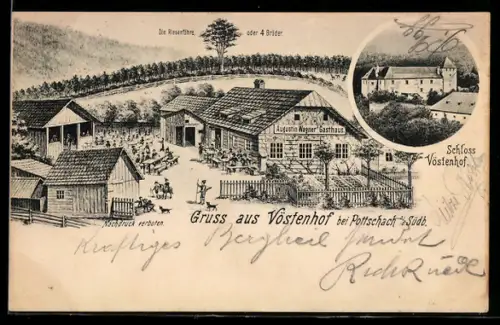 Die Riesenföhre oder 4 Brüder
Augustin Wagner's Gasthaus.
Schloss
Vöstenhof.
Nachdruck verboten.
Gruss aus Vöstenhof bei Pottschach a/Südb.
Kräftiges Bergheil sendet